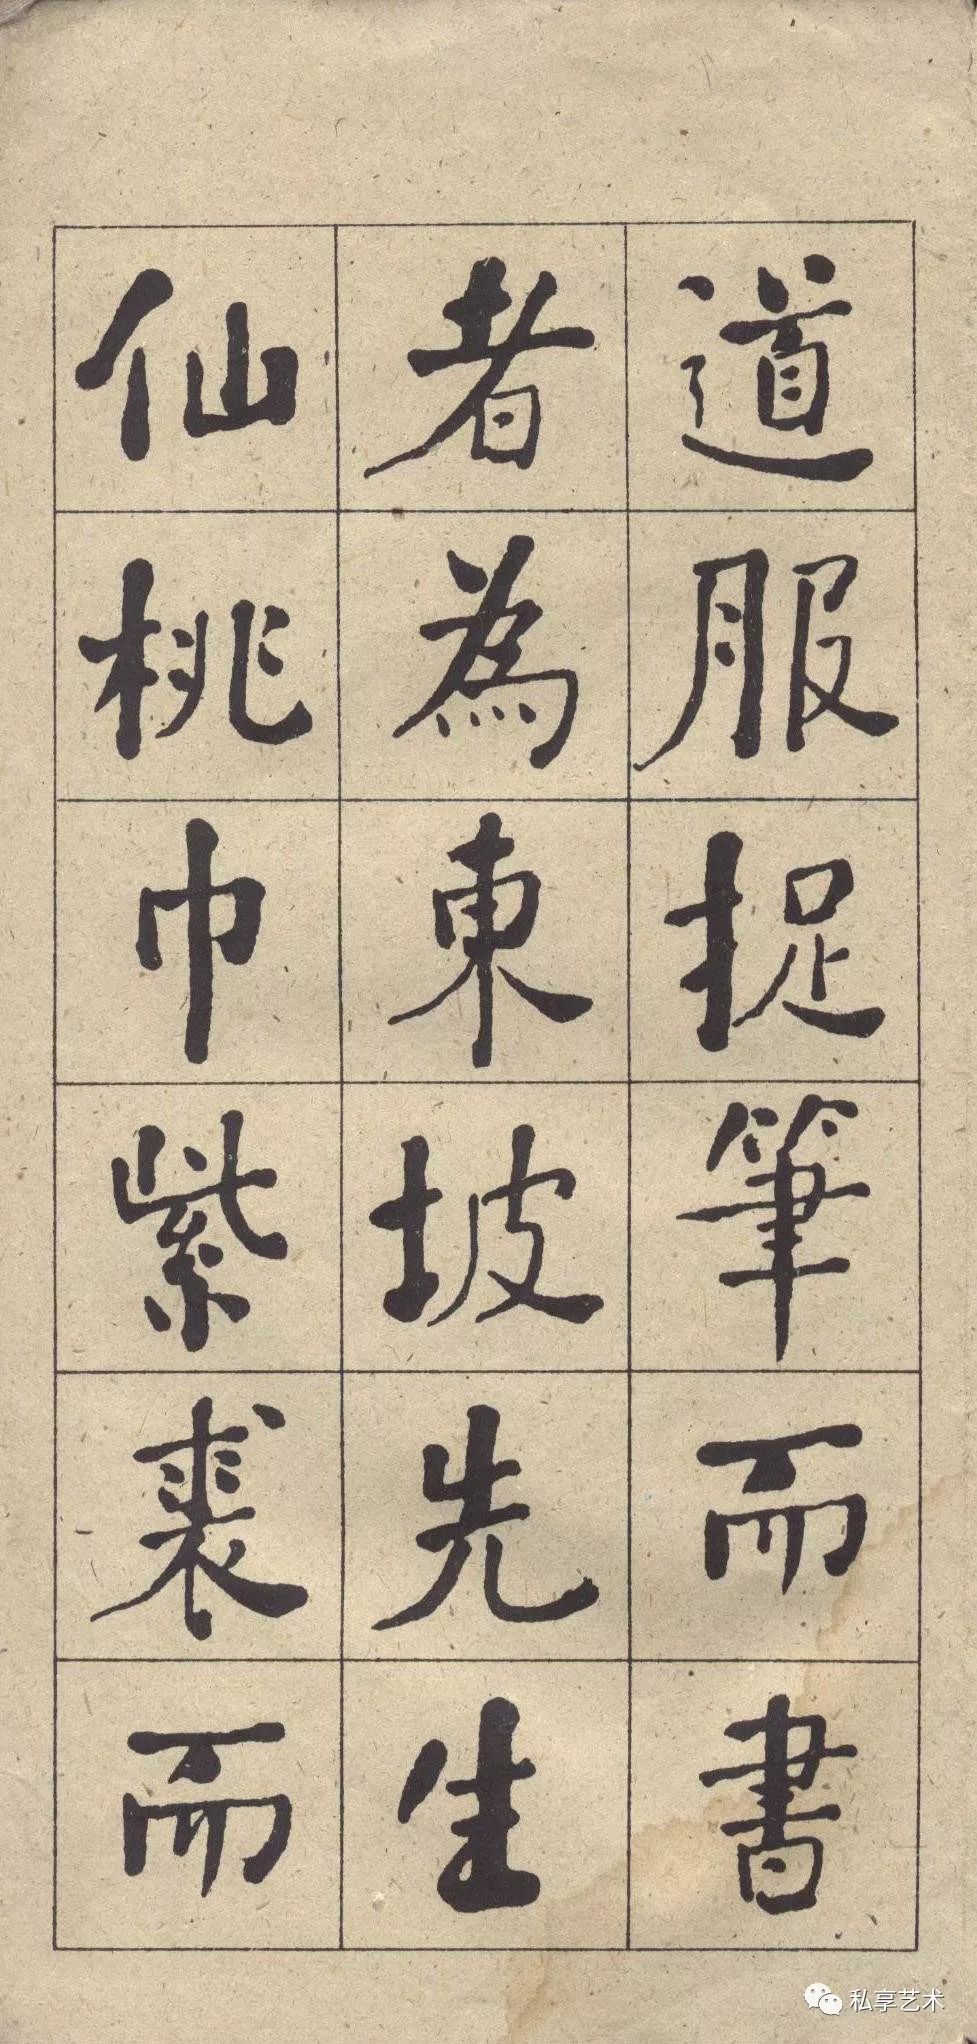 道服捉筆而書
者為東坡先生
仙桃巾紫裘而
私享艺术